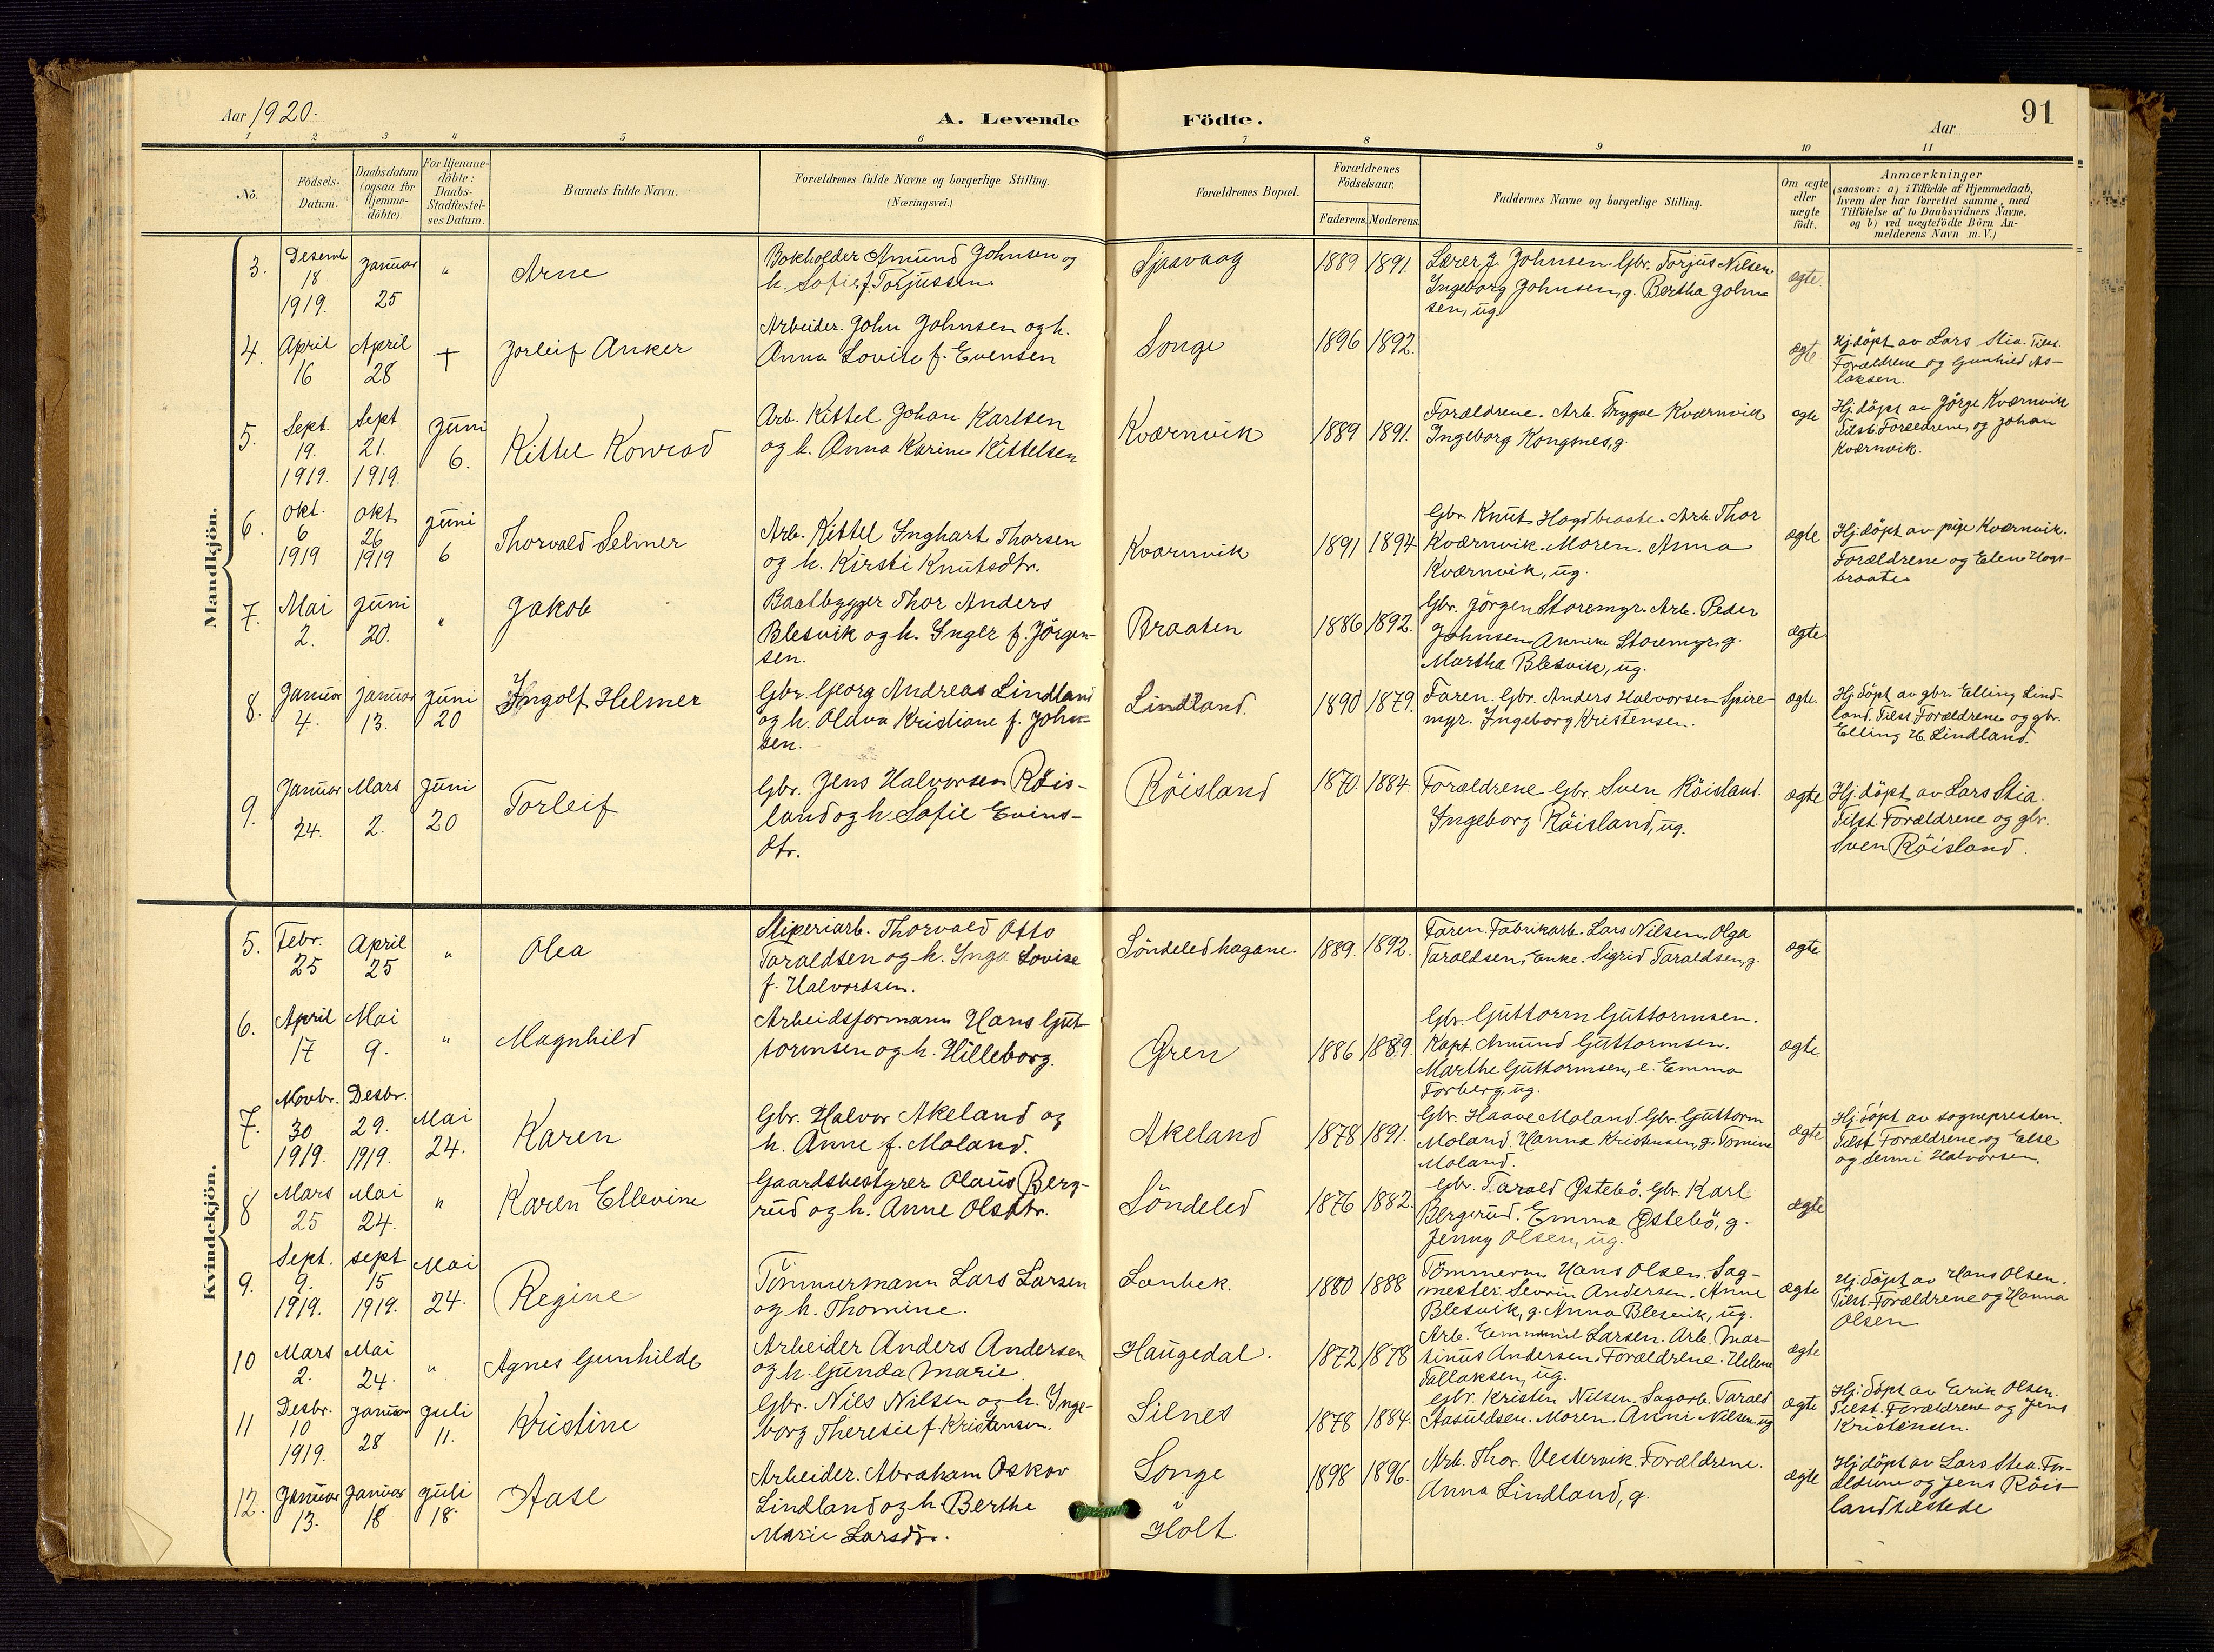 Aar 1920.
A. Levende Födte.
Aar
91
1 2 3 4 5 6 7 8 9 10 11
No.
Födsels-Datum.
Daabsdatum (ogsaa for Hjemme-döbte).
For Hjemme-döbte: Daabs-Stadfæstel-ses Datum.
Barnets fulde Navn.
Forældrenes fulde Navne og borgerlige Stilling. (Næringsvei.)
Forældrenes Bopæl.
Forældrenes Födselsaar.
Faderens. Moderens.
Faddernes Navne og borgerlige Stilling.
Om ægte eller uægte födt.
Anmærkninger
(saasom: a) i Tilfælde af Hjemmedaab, hvem der har forrettet samme, med Tilföielse af to Daabsvidners Navne. og b) ved uægtefödte Börn An-melderens Navn m. V.)
Mandkjön.
3. Desembr 18 1919. Januar 25 " Arne
Bokholder Amund Johnsen og
h. Sofie f. Torjussen.
Sjaavaag 1889 1891.
Lærer J. Johnsen. Gbr. Torjus Nilsen
Ingeborg Johnsen, g. Bertha John-
sen, ug.
ægte.
4. April 16 April 28 + Jorleif Anker
Arbeider. John Johnsen og h.
Anna Lovise f. Evensen
Songe 1896 1892.
ægte
Hj.döpt av Lars Stia. Tilst.
Forældrene og Gunhild As-
laksen.
5. Sept. 19. 1919. Sept 21. 1919. Juni 6. Kittel Konrad
Arb. Kittel Johan Karlsen
og h. Anna Karine Kittelsen
Kværnvik 1889 1891.
Forældrene. Arb. Trygve Kværnvik
Ingeborg Kongsnes, g.
ægte
Hj.döpt av Jörge Kværnvik
Tilst. Forældrene og Johan
Kværnvik.
6. Okt. 6 1919 Okt 26 1919 Juni 6 Thorvald Selmer
Arb. Kittel Inghart Thorsen
og h. Kirsti Knutsdtr.
Kværnvik 1891 1894
Gbr. Knut Hogsbraate. Arb. Thor
Kværnvik. Moren. Anna
Kværnvik, ug.
ægte
Hj.döpt av pige Kværnvik.
Forældrene og Elen Hogs-
braate.
7. Mai 2. Juni 20. " Jakob
Baatbygger Thor Anders
Blesvik og h. Inger f. Jörgen-
sen.
Braaten 1886 1892.
Gbr. Jörgen Storemyr. Arb. Peder
Johnsen Annine Storemyr, g.
Martha Blesvik, ug.
ægte
8. Januar 4. Januar 13. Juni 20 Ingolf Helmer
Gbr. Georg Andreas Lindland
og h. Oldva Kristiane f. John-
sen.
Lindland. 1890 1879.
Faren. Gbr. Anders Halvorsen Spire-
myr. Ingeborg Kristensen.
ægte.
Hj.döpt av gbr. Elling Lind-
land. Tilst. Forældrene og gbr.
Elling H. Lindland.
9. Januar 24. Mars 2. Juni 20 Torleif
Gbr. Jens Halvorsen Röis-
land og h. Sofie Evens-
dtr.
Röisland 1870. 1884.
Forældrene Gbr. Sven Röisland.
Ingeborg Röisland, ug.
ægte
Hj.döpt av Lars Stia.
Tilst. Forældrene og gbr.
Sven Röisland.
Kvindekjön.
5. Febr. 25 April 25 " Olea
Sliperiarb. Thorvald Otto
Taraldsen og h. Inga Lovise
f. Halvorsen.
Söndeled hagane. 1889. 1892.
Faren. Fabrikarb. Lars Nilsen. Olga
Taraldsen, Enke. Sigrid Taraldsen, g.
ægte
6. April 17 Mai 9. " Magnhild
Arbeidsformann Hans Gut-
tormsen og h. Hilleborg.
Gren 1886 1889.
Gbr. Guttorm Guttormsen.
Kapt. Amund Guttormsen.
Marthe Guttormsen, e. Emma
Forberg, ug.
ægte
7. Novbr. 30 1919. Desbr. 29. 1919. Mai 24. Karen
Gbr. Halvor Akeland og
h. Anne f. Moland.
Akeland 1878 1891.
Gbr. Haave Moland. Gbr. Guttorm
Moland. Hanna Kristensen, g. Tomine
Moland.
ægte
Hj.döpt av sognepresten.
Tilst. Forældrene og Else
og Jenni Halvorsen.
8 Mars 25 Mai 24. " Karen Ellevine
Gaardsbestyrer Olaus Berg-
rud og h. Anne Olsdtr.
Söndeled 1876 1882.
Gbr. Tarald Østebö. Gbr. Karl
Bergsrud. Emma Østebö, g.
Jenny Olsen, ug.
ægte
9. Sept. 9. 1919. Sept 15 1919. Mai 24. Regine
Tömmermann Lars Larsen
og h. Thomine.
Lanbek. 1880 1888
Tömmerm. Hans Olsen. Sag-
mester. Sevrin Andersen. Anne
Blesvik, g. Anna Blesvik, ug.
ægte
Hj.döpt av Hans Olsen.
Tilst. Forældrene og Hanna
Olsen
10 Mars 2. Mai 24. " Agnes Gunhilde
Arbeider Anders Andersen
og h. Gunda Marie.
Haugedal. 1872 1878
Arb. Emmanuel Larsen. Arb. Mar-
tinus Andersen Forældrene. Helene
Tallaksen, ug.
ægte
11 Desbr. 10 1919. Januar 28 Juli 11. Kristine
Gbr. Nils Nilsen og h. Inge-
borg Theresie f. Kristensen.
Silnes 1878 1884.
Gbr. Kristen Nilsen. Sagarb. Tarald
Aasuldsen. Moren. Anni Nilsen, ug
ægte
Hj.döpt av Erik Olsen.
Tilst. Forældrene og Jens
Kristensen.
12. Januar 13. Januar 18 Juli 18. Aase
Arbeider. Abraham Oskar
Lindland og h. Berthe
Marie Larsdtr.
Songe
i
Holt. 1898 1896.
Arb. Thor. Vestervik. Forældrene.
Anna Lindland, g.
ægte
Hj.döpt av Lars Stea. For-
ældrene og Jens Röis-
land tilstede